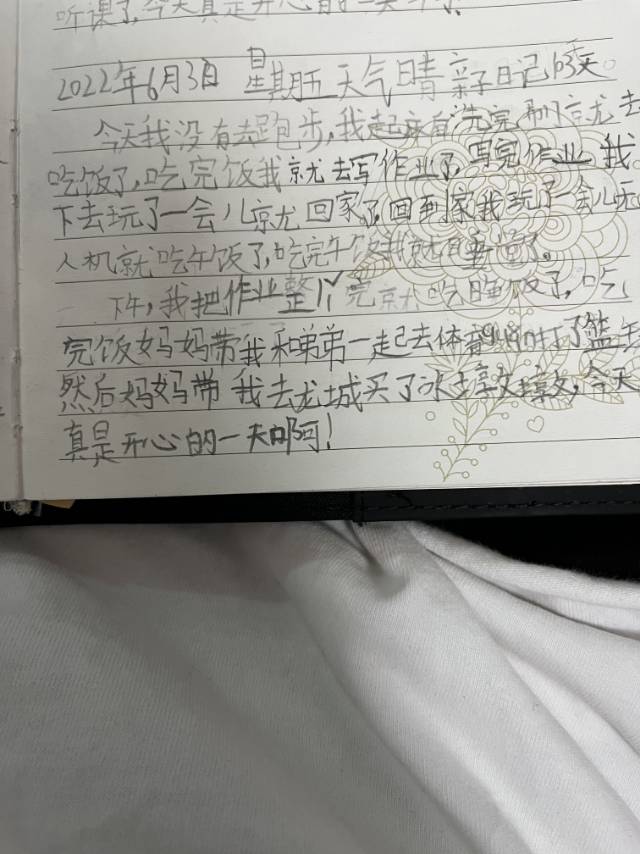 听课了,今天真是开心的一天
2022年6月3日 星期五天气晴 亲子日记 天
今天我没有去跑步,我起床 洗完 就去
吃饭了,吃完饭我就去写作业了,写完作业我
下去玩了一会儿就回家了,回到家我玩了一会儿无
人机就吃午饭了,吃完午饭我就
下午,我把作业整个完就吃晚饭了,吃
完饭妈妈带我和弟弟一起去体育 打了篮
然后妈妈带我去龙城买了冰 ,今天
真是开心的一天啊!